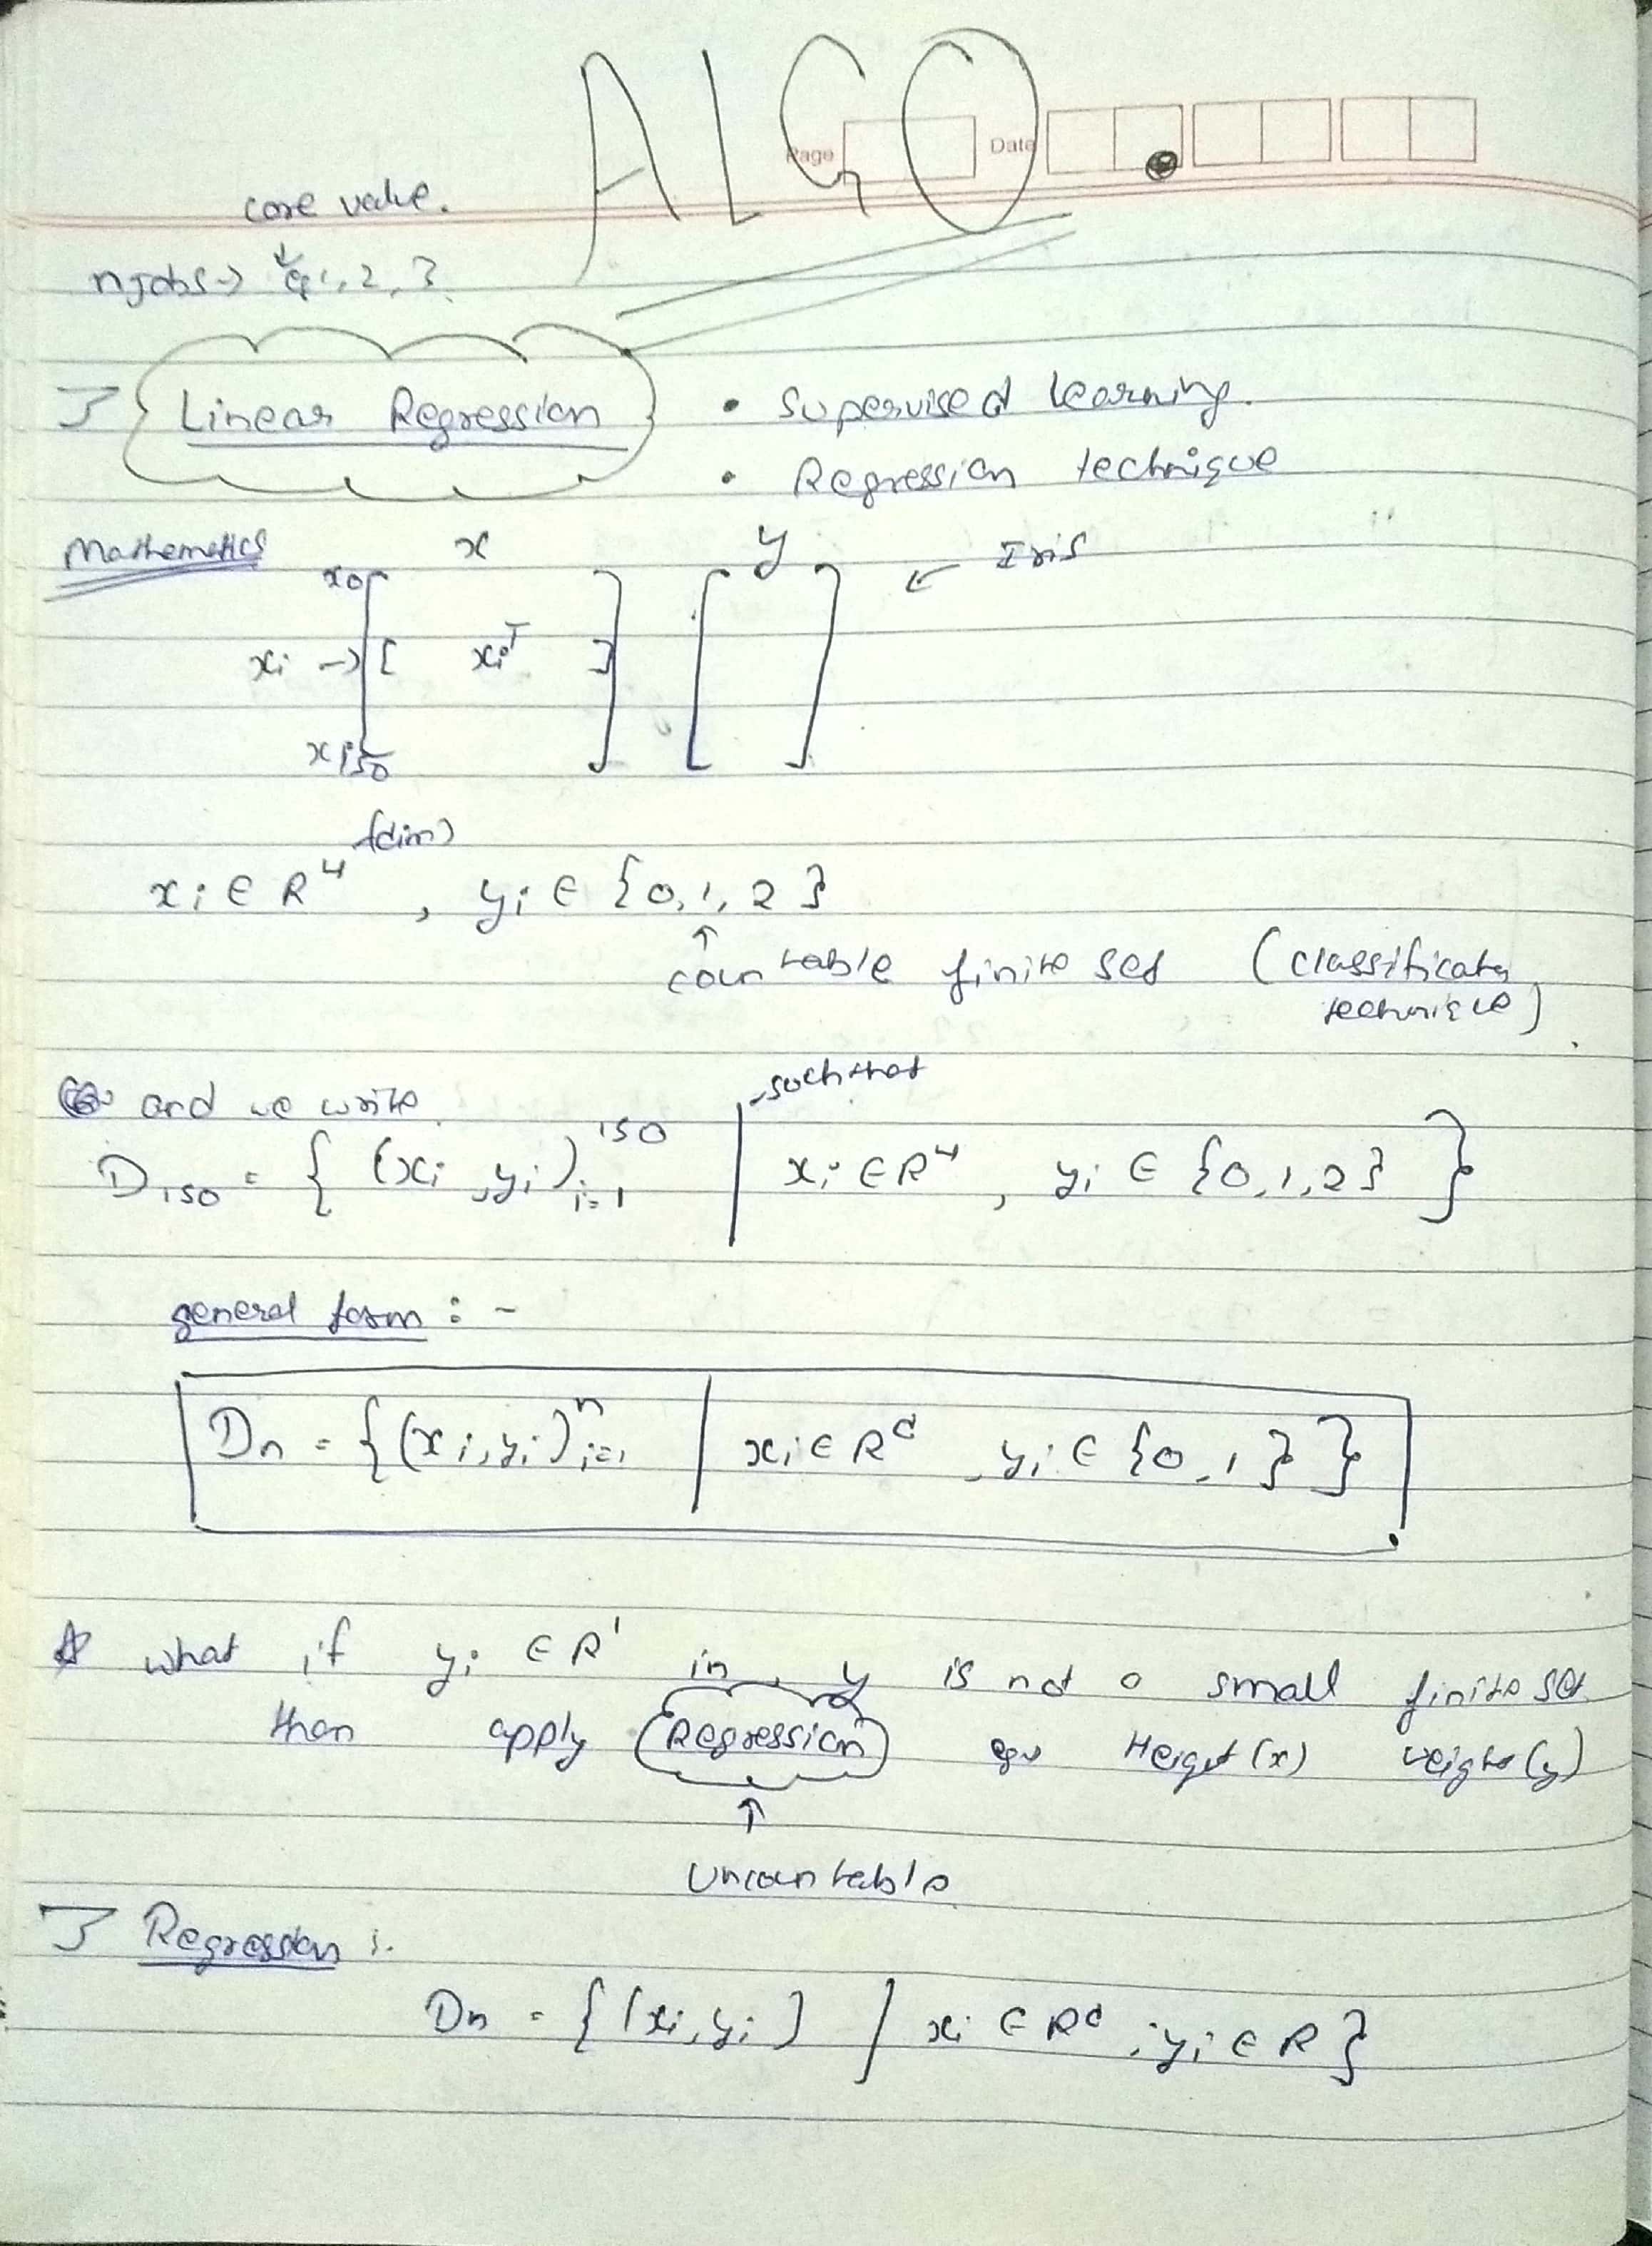 ALGO
Page Date
core value.
njobs → eg 1, 2, 3
Linear Regression • Supervised learning.
• Regression technique
Mathematics x y ← Iris
x0
xi → [ xiᵀ ]
x150
(dim)
xi ∈ R⁴ , yi ∈ {0, 1, 2}
↑
countable finite set (classification
technique)
and we write such that
D150 = { (xi, yi)¹⁵⁰ i=1 | xi ∈ R⁴ , yi ∈ {0, 1, 2} }
general form : -
Dn = {(xi, yi)ⁿ i=1 | xi ∈ Rᵈ , yi ∈ {0, 1} }
what if yi ∈ R¹ in, y is not a small finite set
then apply Regression eg Height(x) weight(y)
↑
Uncountable
Regression :.
Dn = {(xi, yi) | xi ∈ Rᵈ ; yi ∈ R}